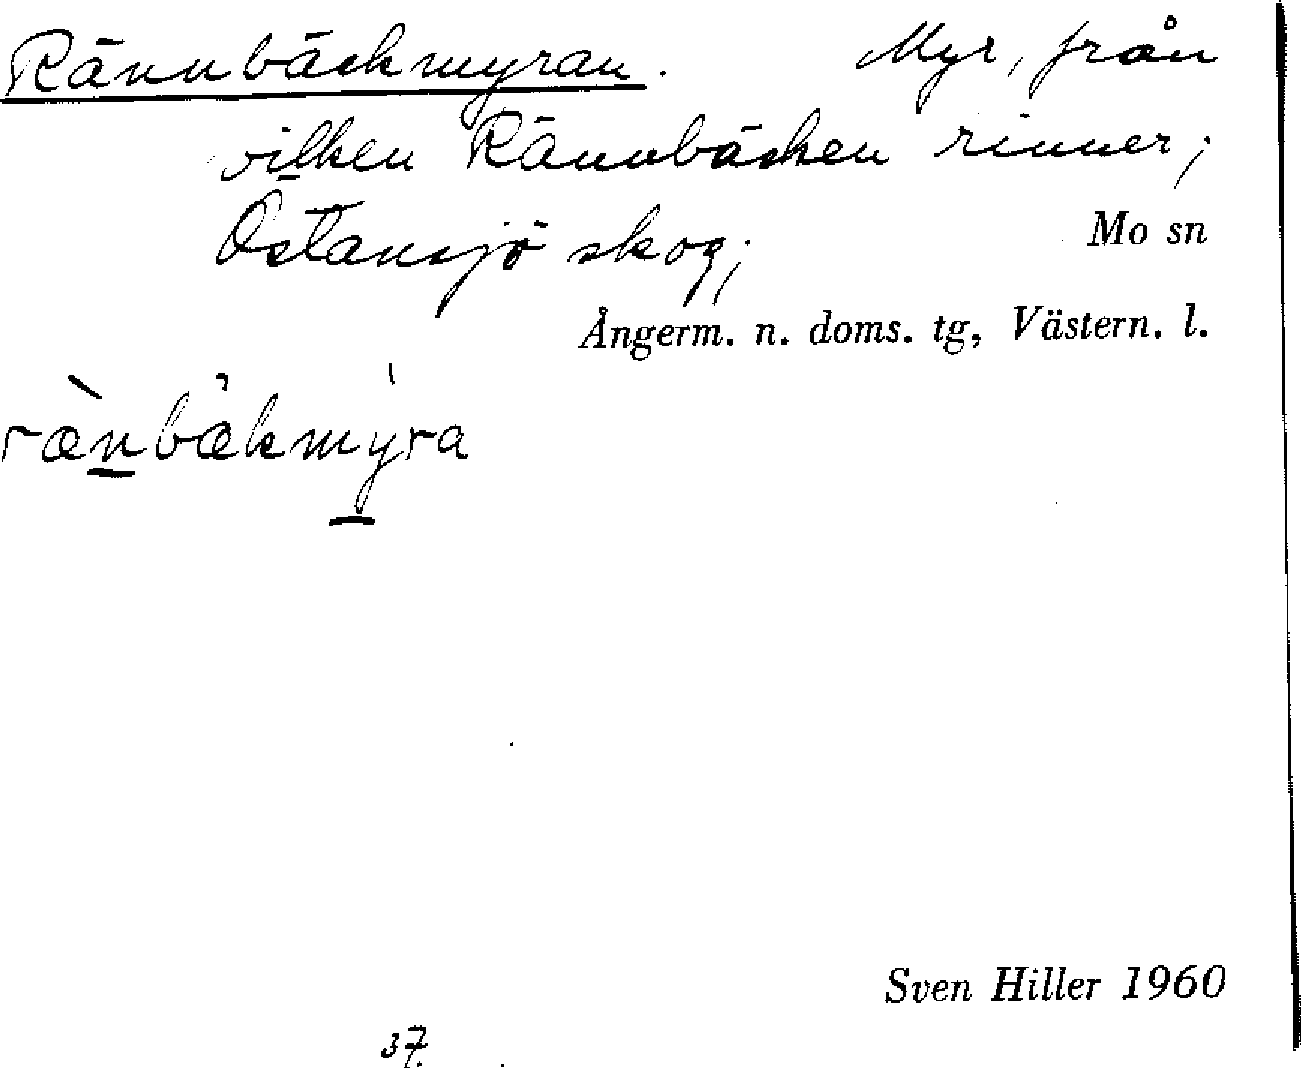 Rännbäckmyran. Myr, från
vilken Rännbäcken rinner;
Östansjö skog; Mo sn
Ångerm. n. doms. tg, Västern. l.
ræ̀nbækmyra
Sven Hiller 1960
37.